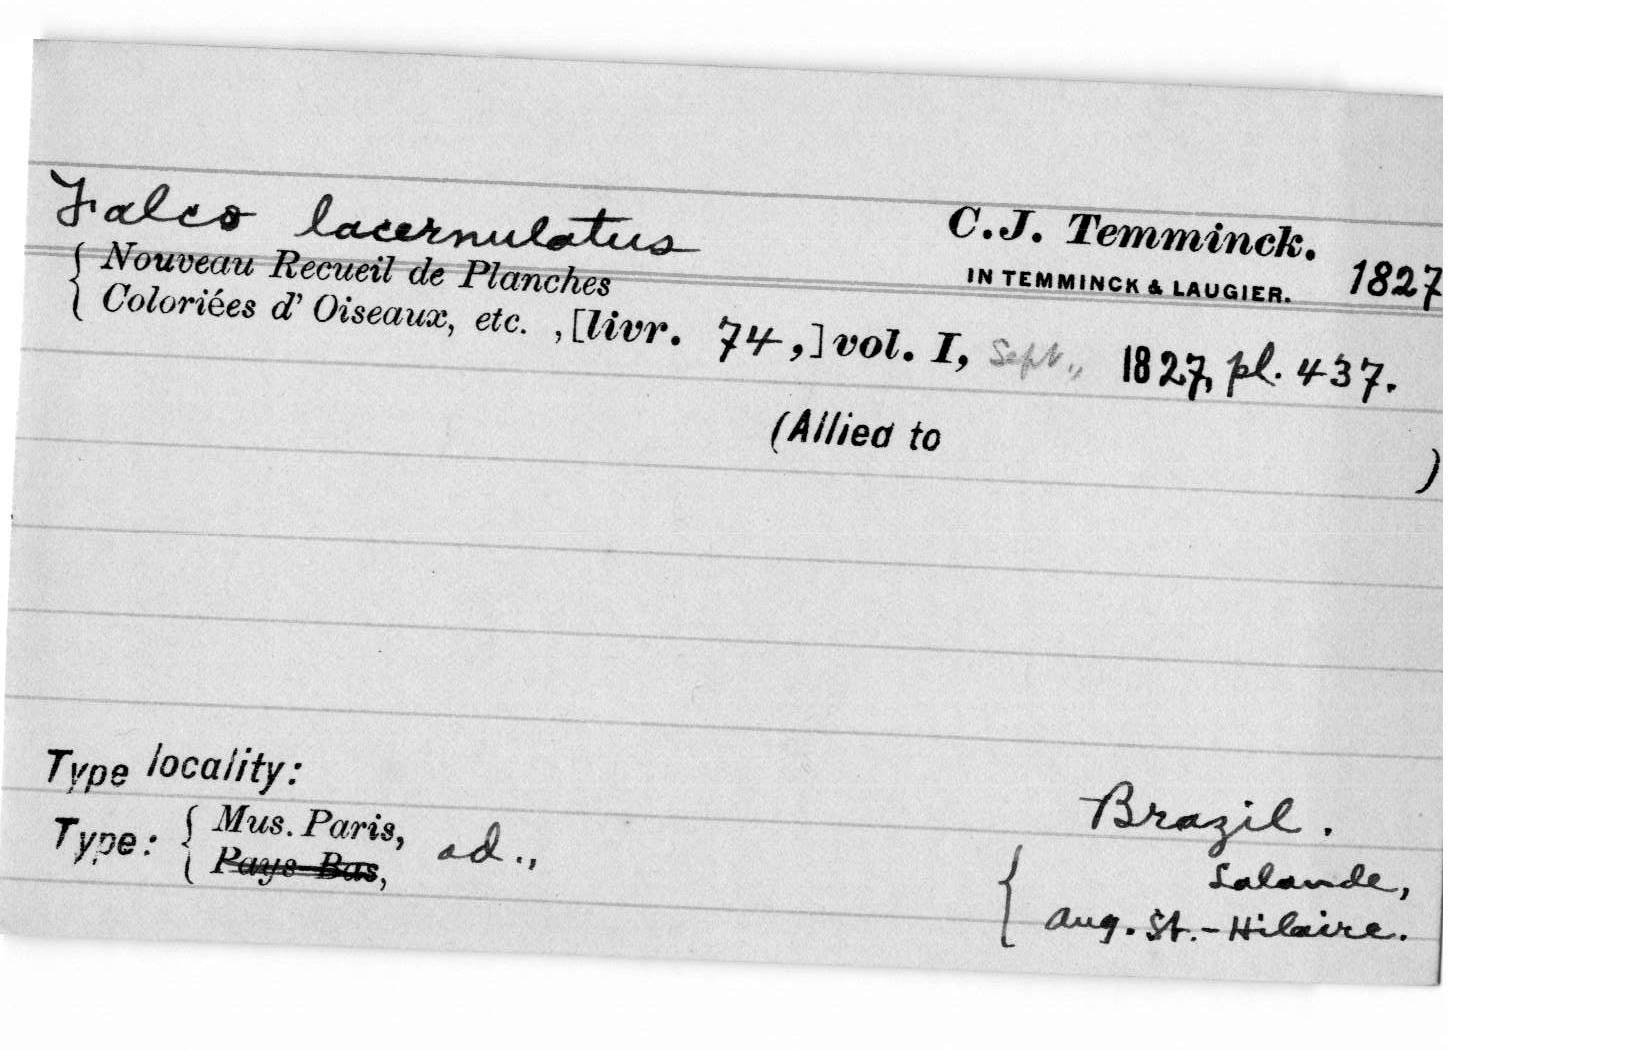 Falco lacernulatus C.J. Temminck.
IN TEMMINCK & LAUGIER. 1827
{ Nouveau Recueil de Planches
Coloriées d' Oiseaux, etc. , [livr. 74,] vol. I, Sept., 1827, pl. 437.
(Allied to )
Type locality: Brazil.
Type: { Mus. Paris, ad., { Lalande,
Pays-Bas, Aug. St.-Hilaire.